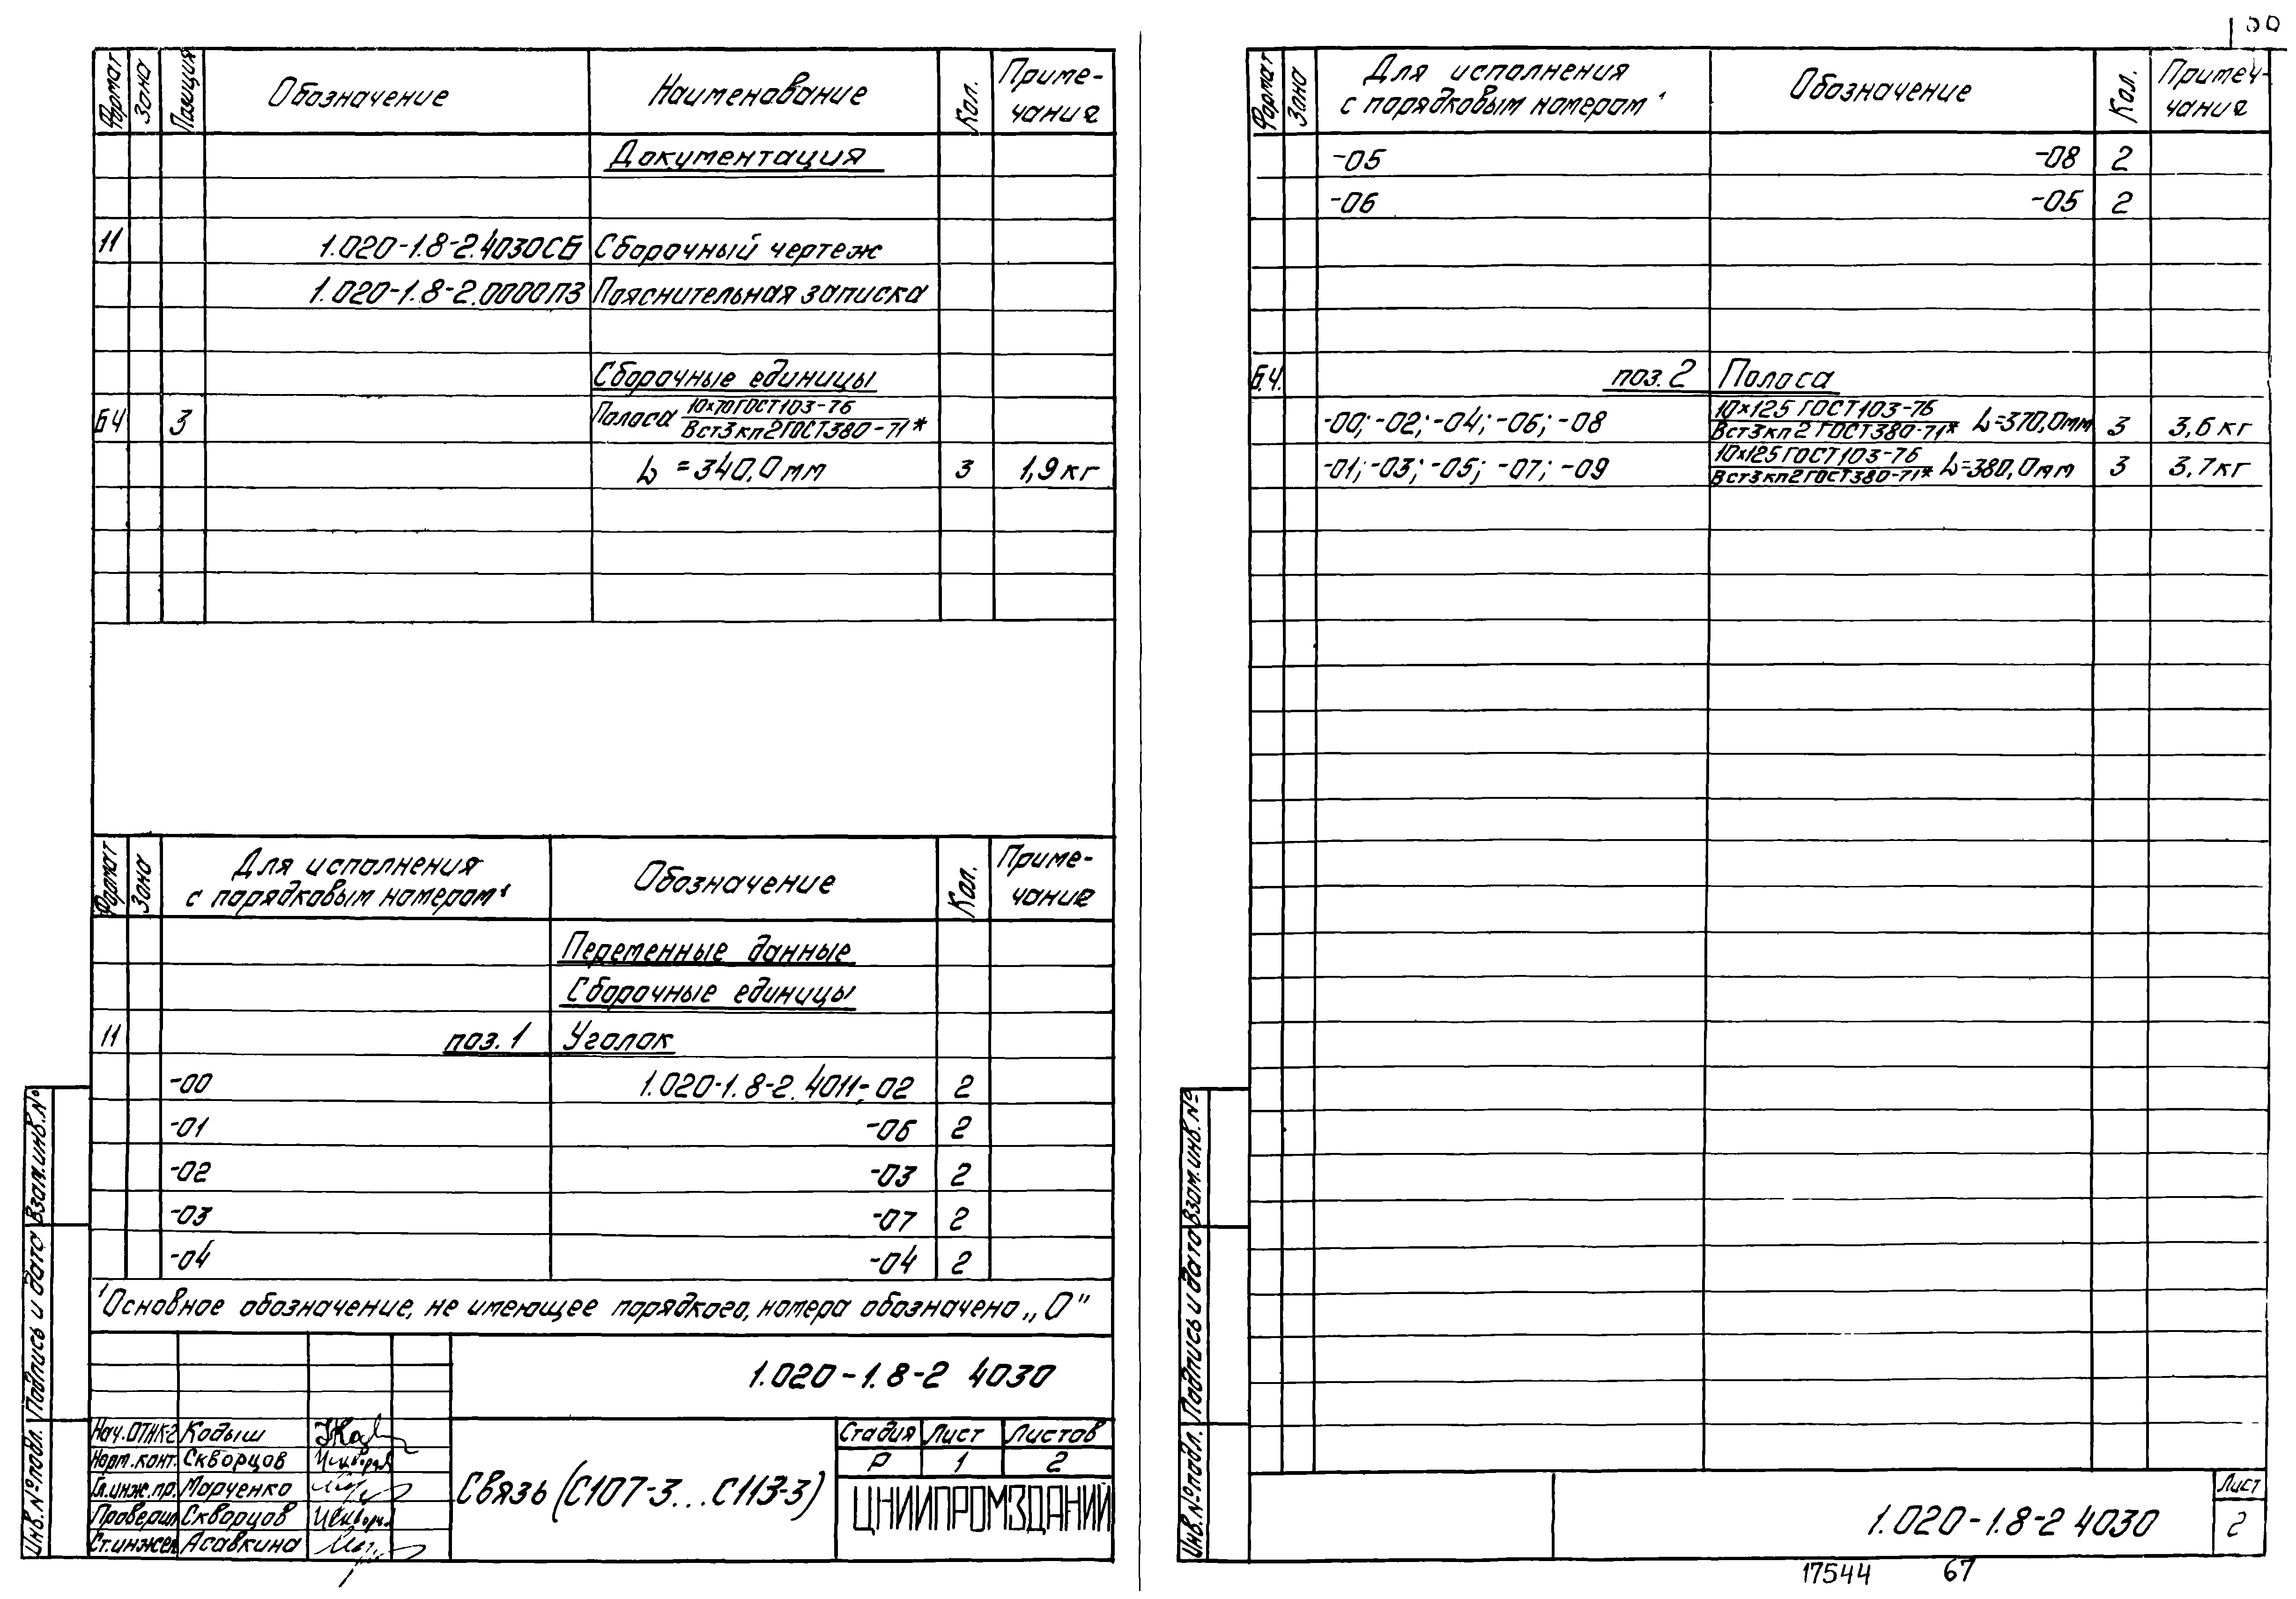 Формат Зона Позиция Обозначение Наименование Кол. Приме-
чания
Документация
11 1.020-1.8-2.4030СБ Сборочный чертеж
1.020-1.8-2.0000ПЗ Пояснительная записка
Сборочные единицы
БЧ 3 Полоса 10×70 ГОСТ 103-76
Вст3кп2 ГОСТ 380-71*
L = 340,0 мм 3 1,9 кг
Формат Зона Для исполнения
с порядковым номером¹ Обозначение Кол. Приме-
чание
Переменные данные
Сборочные единицы
11 поз. 1 Уголок
-00 1.020-1.8-2.4011-02 2
-01 -06 2
-02 -03 2
-03 -07 2
-04 -04 2
¹Основное обозначение, не имеющее порядкого, номера обозначено „О"
1.020-1.8-2 4030
Нач.ОТНК-2 Кодыш
Норм.конт. Скворцов
Гл.инж.пр. Марченко
Проверил Скворцов
Ст.инжен Асавкина
Связь (С107-3...С113-3)
Стадия Лист Листов
Р 1 2
ЦНИИПРОМЗДАНИЙ
Инв.№подл. Подпись и дата Взам.инв.№
Формат Зона Для исполнения
с порядковым номером¹ Обозначение Кол. Примеч-
чание
-05 -08 2
-06 -05 2
Б.Ч. поз. 2 Полоса
-00; -02; -04; -06; -08 10×125 ГОСТ 103-76
Вст3кп2 ГОСТ 380-71* L=370,0мм 3 3,6 кг
-01; -03; -05; -07; -09 10×125 ГОСТ 103-76
Вст3кп2 ГОСТ 380-71* L=380,0мм 3 3,7кг
Инв.№подл. Подпись и дата Взам.инв.№
1.020-1.8-2 4030
Лист
2
17544 67